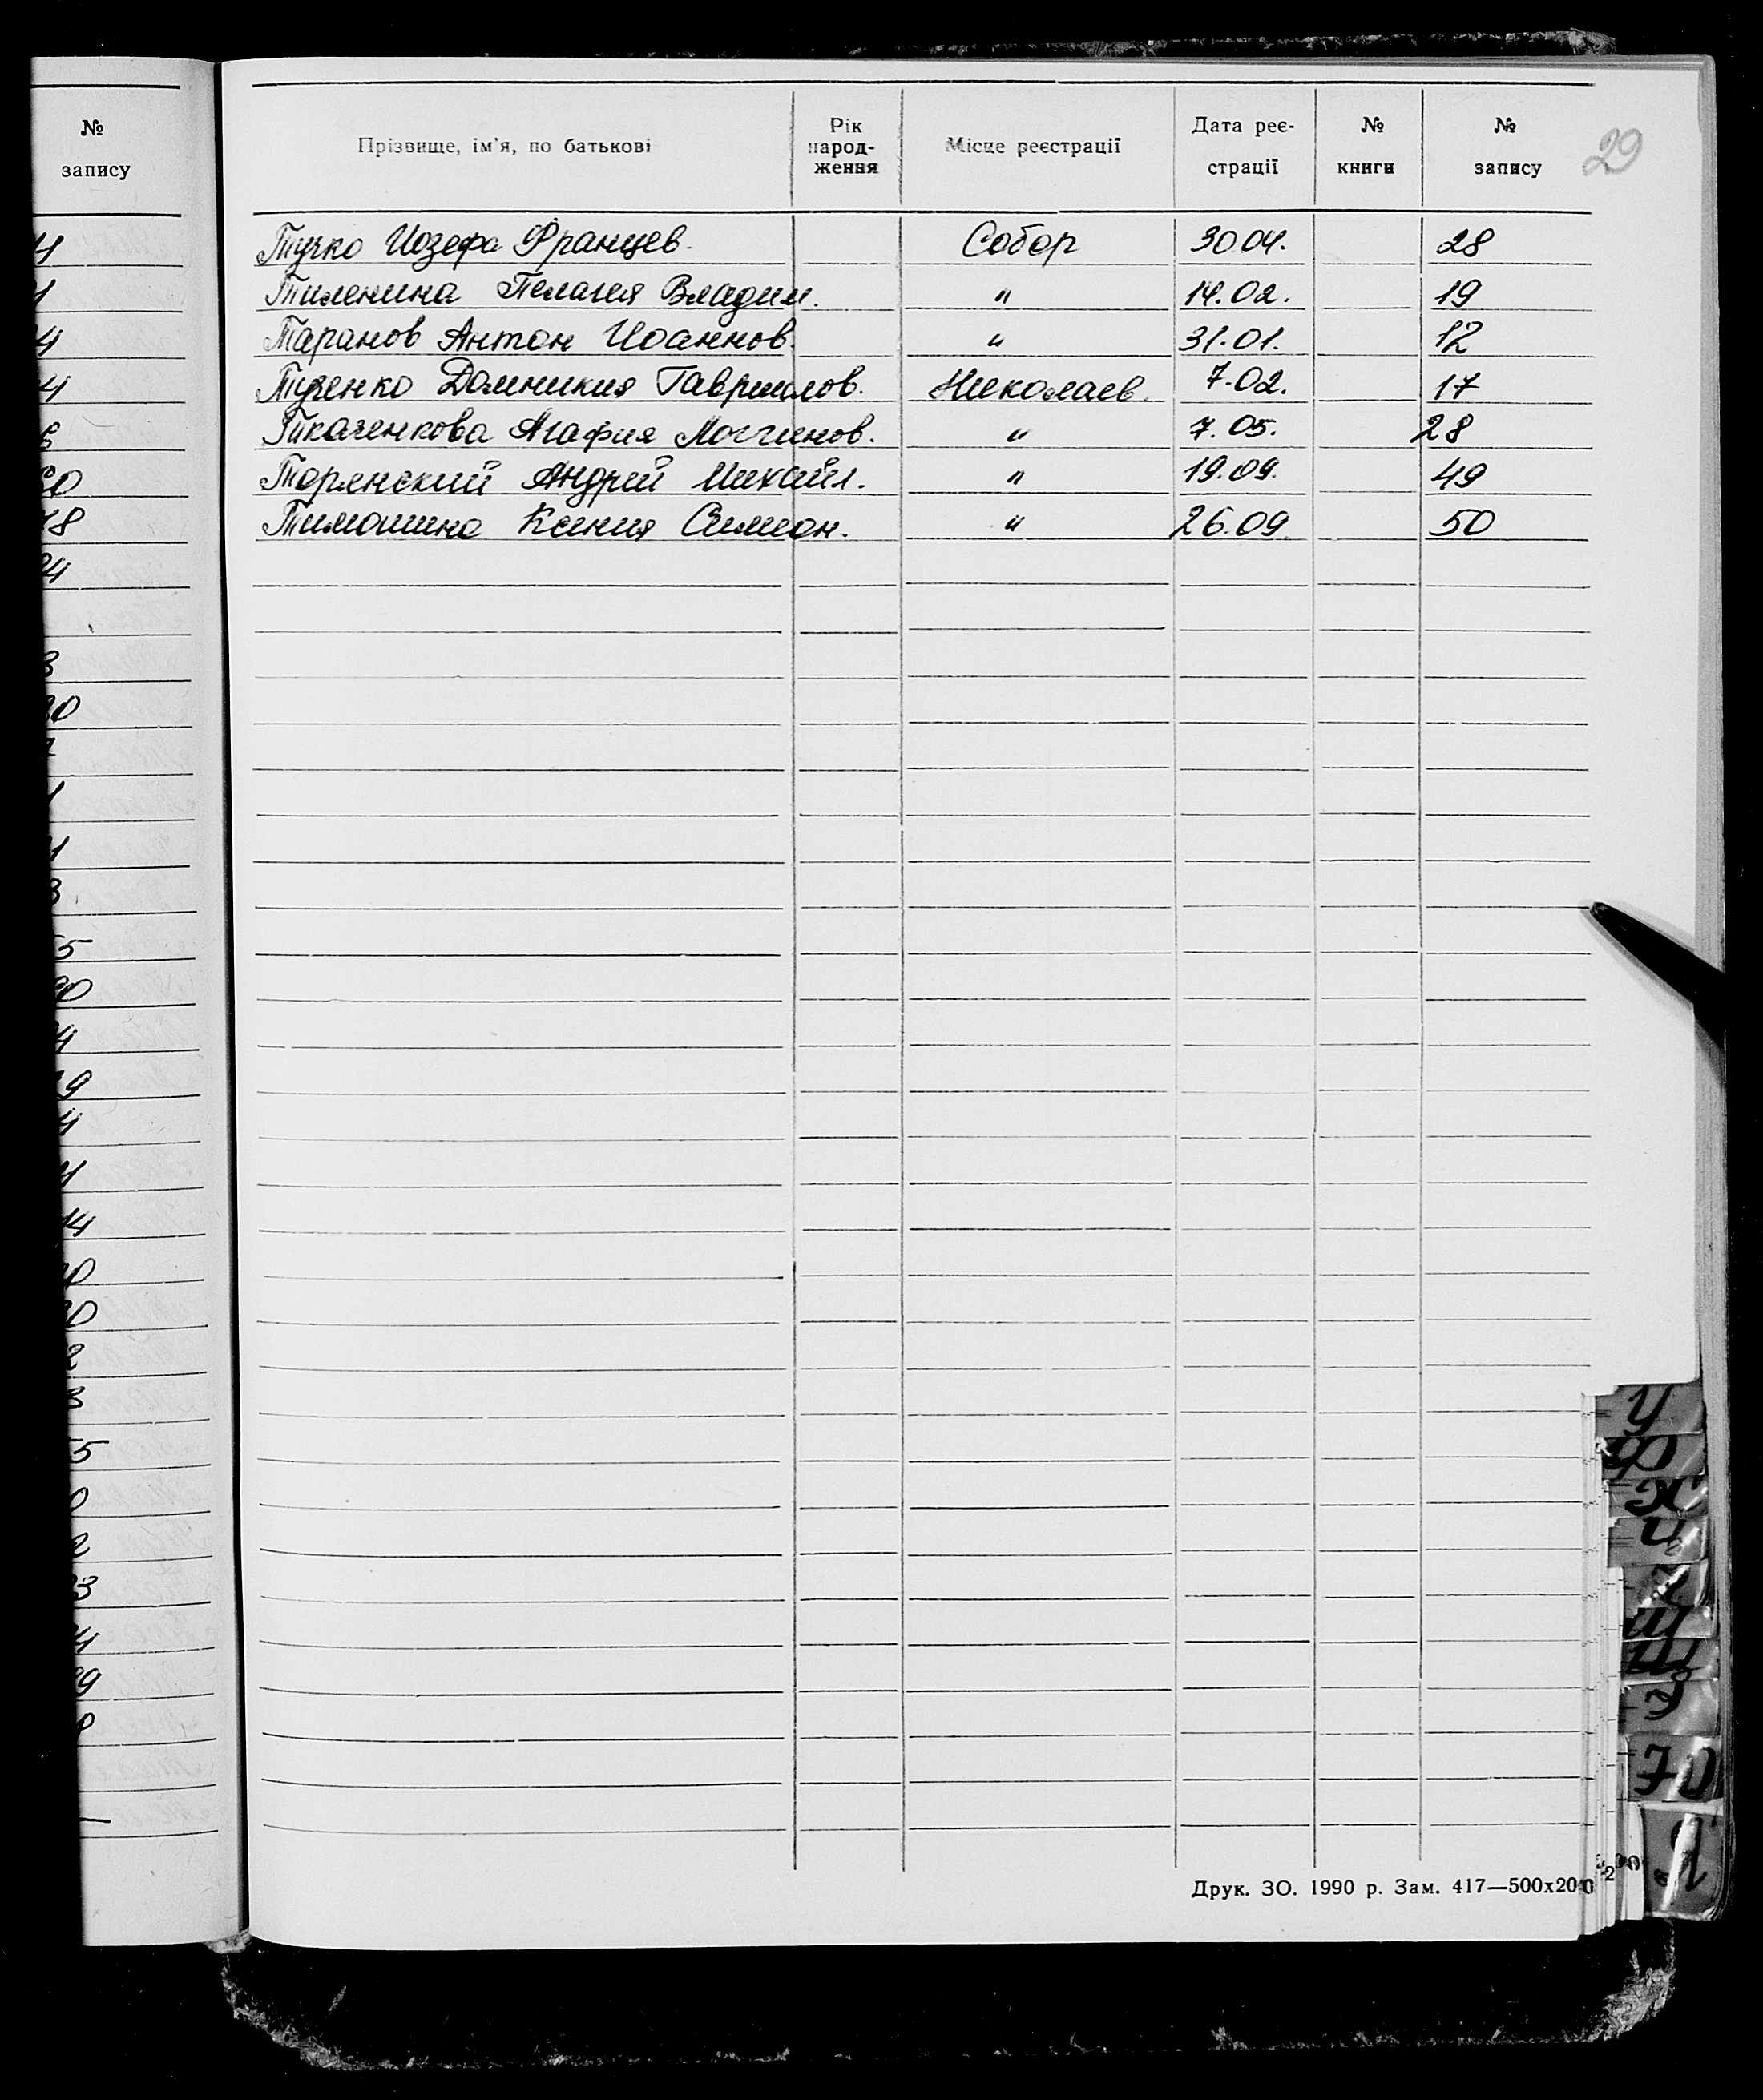 №
запису
4
1
4
4
5
20
78
24
3
20
1
1
3
5
20
4
9
4
1
14
20
20
8
5
0
2
3
4
29
Прізвище, ім'я, по батькові Рік народ-ження Місце реєстрації Дата реє-страції № книги № запису
29
Тучко Иозефа Францев. Собор 30.04. 28
Тиленина Пелагея Владим. " 14.02. 19
Таранов Антон Иоаннов. " 31.01. 12
Тузенко Домникия Гавриилов. Николаев. 7.02. 17
Ткаченкова Агафия Логгинов. " 7.05. 28
Торянский Андрей Михайл. " 19.09. 49
Тимошина Ксения Симеон. " 26.09. 50
У
Ф
Х
Ц
Ч
Ш
Щ
Э
Ю
Я
Друк. ЗО. 1990 р. Зам. 417—500х200